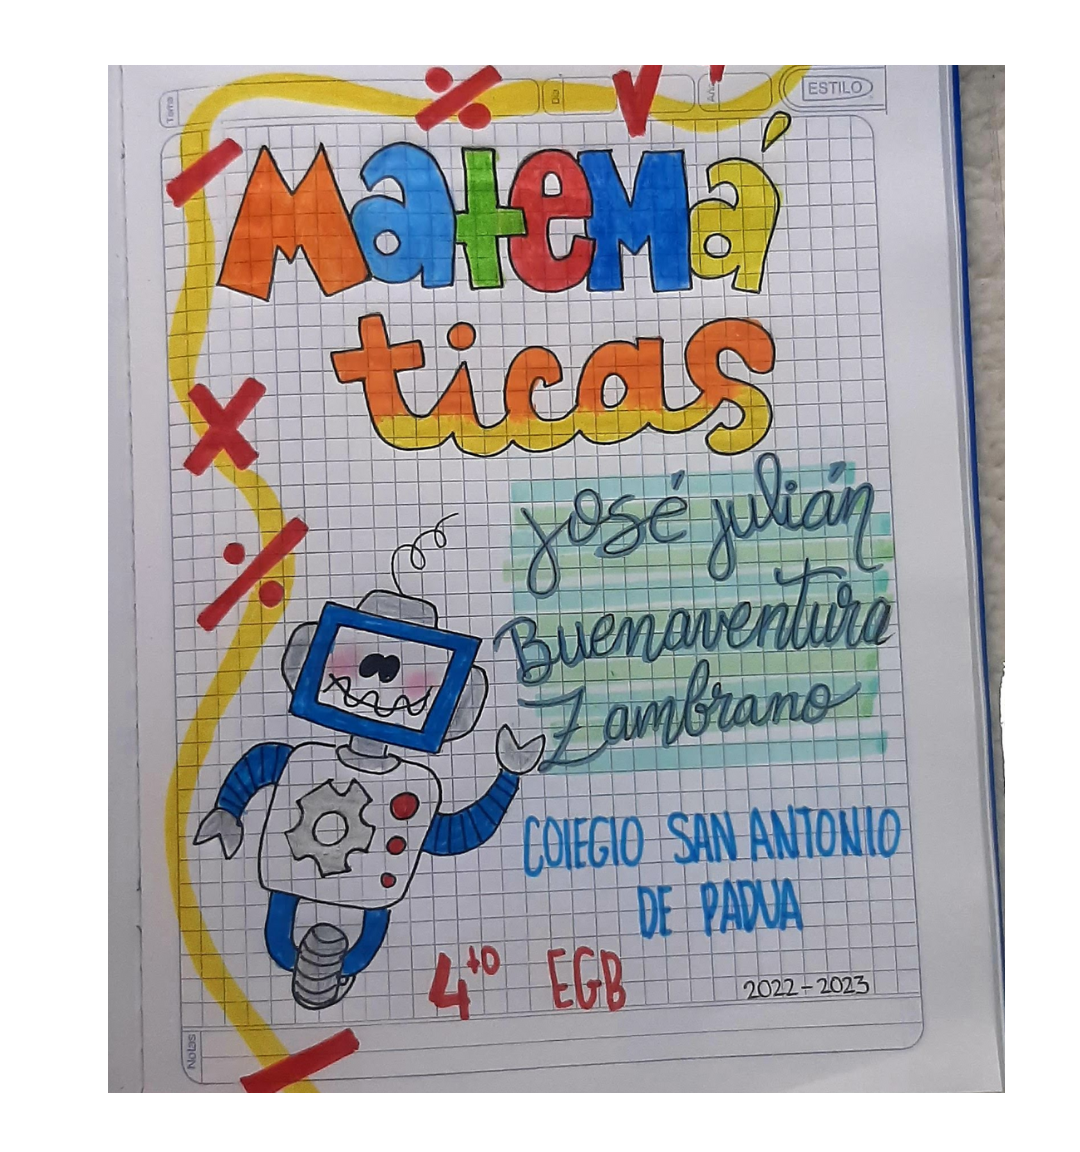 Tema
Día
Año
ESTILO
Matemá
ticas
José Julián
Buenaventura
Zambrano
COlEGIO SAN ANTONIO
DE PADUA
4to EGB
2022-2023
Notas